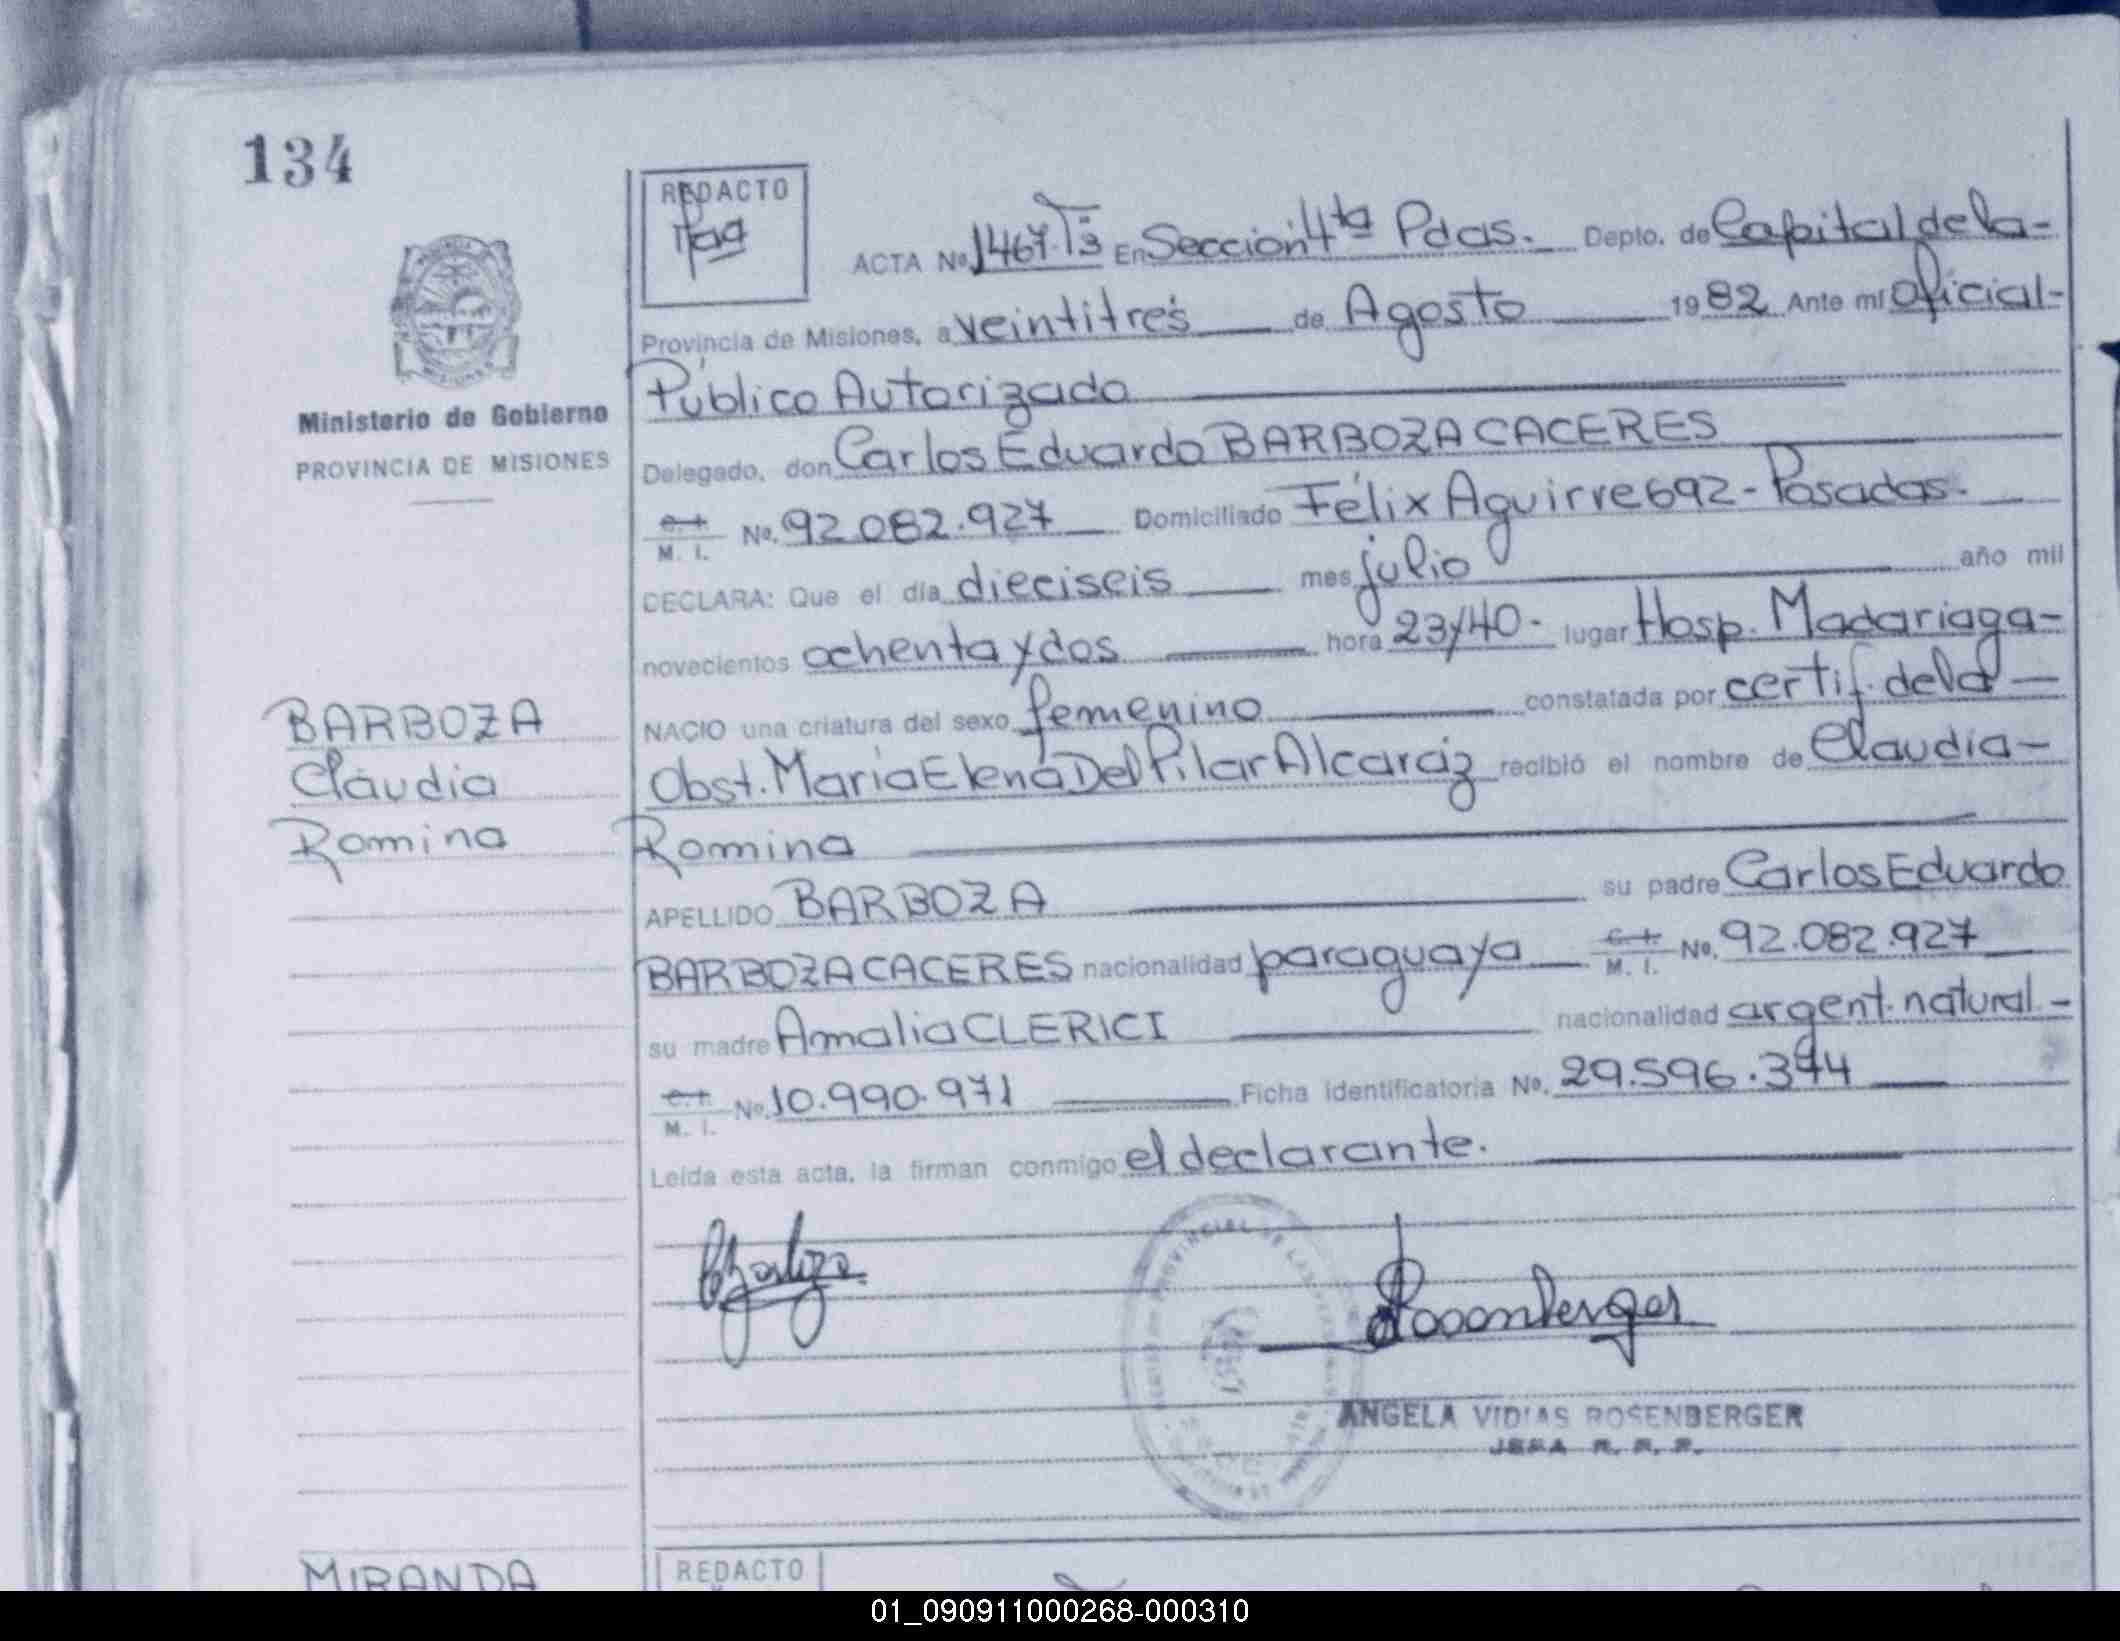 134
REDACTO
ACTA No. 1467. T3 En Seccion 4ta Pdas. Depto. de Capital de la-
Provincia de Misiones, a veintitrés de Agosto 1982 Ante mí oficial-
Público Autorizado
Ministerio de Gobierno
PROVINCIA DE MISIONES
Delegado, don Carlos Eduardo BARBOZA CACERES
M. I. No. 92.082.927 Domiciliado Félix Aguirre 692 - Posadas.
DECLARA: Que el día dieciseis mes julio año mil
novecientos ochenta y dos hora 23/40. lugar Hosp. Madariaga-
BARBOZA
NACIO una criatura del sexo femenino constatada por certif. de la
Claudia
Obst. María Elena Del Pilar Alcaráz recibió el nombre de Claudia-
Romina
Romina
APELLIDO BARBOZA su padre Carlos Eduardo
BARBOZA CACERES nacionalidad paraguaya M. I. No. 92.082.927
su madre Amalia CLERICI nacionalidad argent. natural.-
M. I. No. 10.990.971 Ficha identificatoria No. 29.596.374
Leída esta acta, la firman conmigo el declarante.
Rosenberger
ANGELA VIDIAS ROSENBERGER
JEFA R. P. P.
MIRANDA
REDACTO
01_090911000268-000310